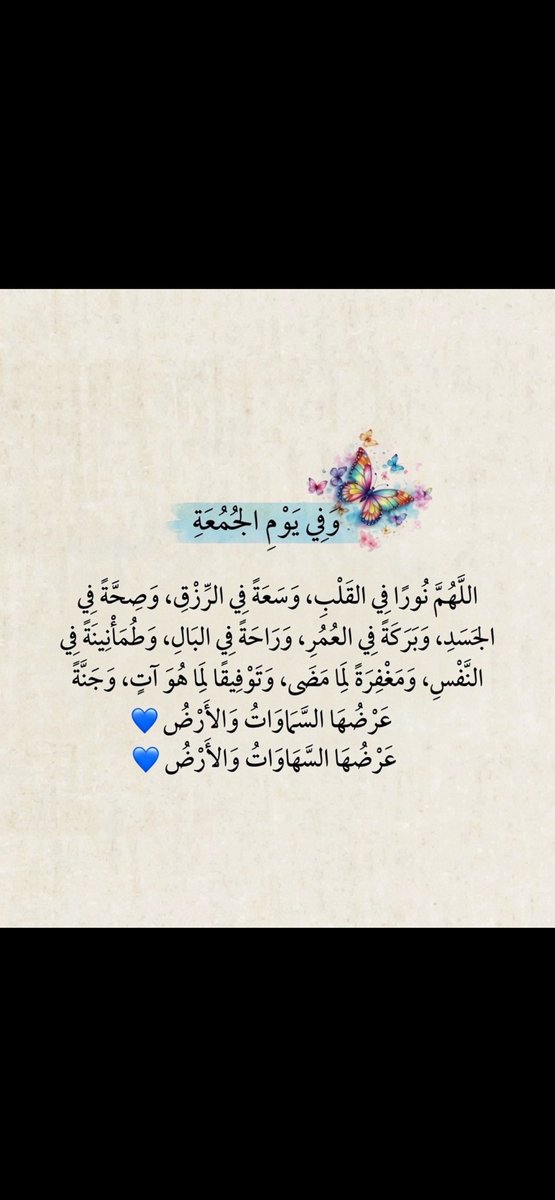 وَفِي يَوْمِ الجُمُعَةِ
اللَّهُمَّ نُورًا فِي القَلْبِ، وَسَعَةً فِي الرِّزْقِ، وَصِحَّةً فِي
الجَسَدِ، وَبَرَكَةً فِي العُمُرِ، وَرَاحَةً فِي البَالِ، وَطُمَأْنِينَةً فِي
النَّفْسِ، وَمَغْفِرَةً لِمَا مَضَى، وَتَوْفِيقًا لِمَا هُوَ آتٍ، وَجَنَّةً
عَرْضُهَا السَّمَاوَاتُ وَالأَرْضُ 💙
عَرْضُهَا السَّهَاوَاتُ وَالأَرْضُ 💙